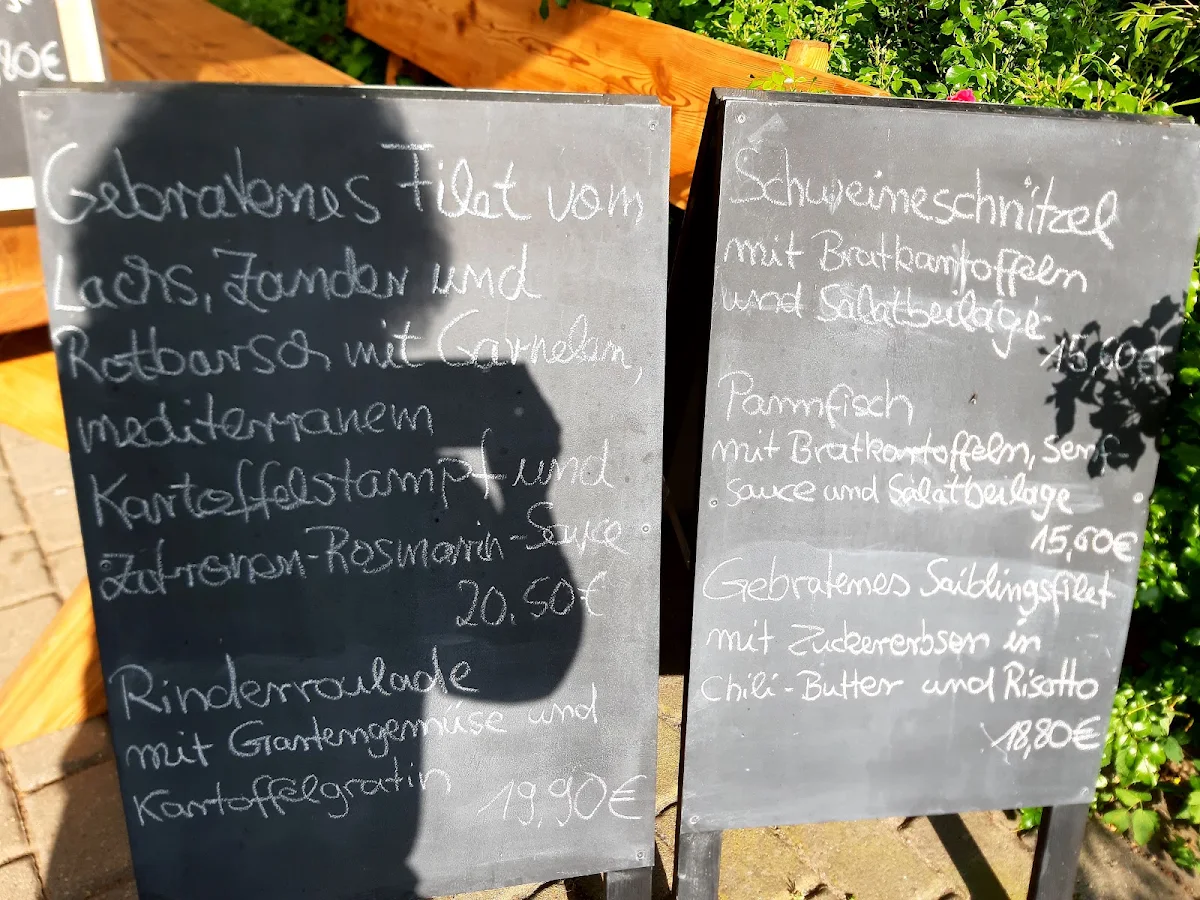 80€
Gebratenes Filet vom
Lachs, Zander und
Rotbarsch mit Garnelen,
mediterranem
Kartoffelstampf und
Zitronen-Rosmarin-Sauce
20.50€
Rinderroulade
mit Gartengemüse und
Kartoffelgratin 19,90€
Schweineschnitzel
mit Bratkartoffeln
und Salatbeilage
15,60€
Pannfisch
mit Bratkartoffeln, Senf-
sauce und Salatbeilage
15,60€
Gebratenes Saiblingsfilet
mit Zuckererbsen in
Chili-Butter und Risotto
18,80€